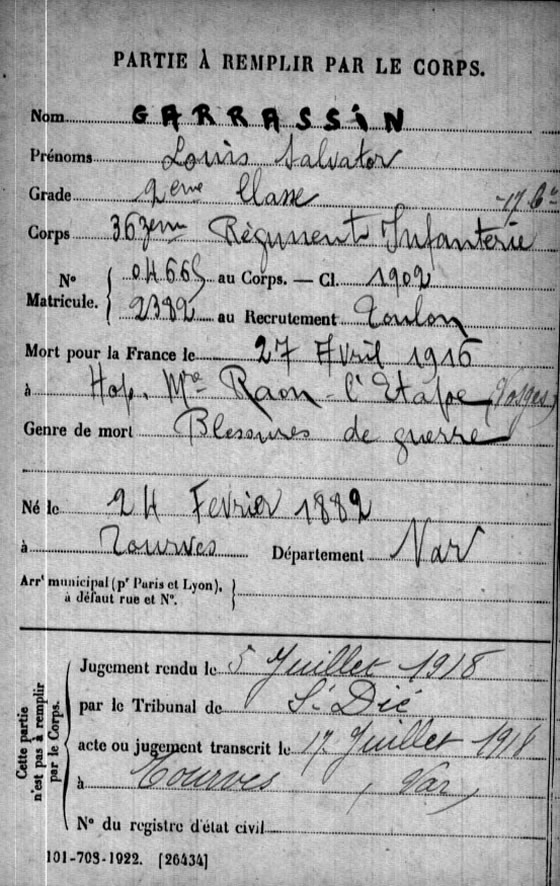 PARTIE À REMPLIR PAR LE CORPS.
Nom GARRASSIN
Prénoms Louis Salvator
Grade 2eme Classe -17 Cie
Corps 363eme Régiment Infanterie
N° Matricule. 04665 au Corps. — Cl. 1902
2382 au Recrutement Toulon
Mort pour la France le 27 Avril 1916
à Hop. Mre Raon-l'Etape (Vosges)
Genre de mort Blessures de guerre
Né le 24 Fevrier 1882
à Tourves Département Var
Arrt municipal (pr Paris et Lyon),
à défaut rue et N°.
Cette partie n'est pas à remplir par le Corps.
Jugement rendu le 5 Juillet 1918
par le Tribunal de St Dié
acte ou jugement transcrit le 17 Juillet 1918
à Tourves (Var)
N° du registre d'état civil
101-708-1922. [26434]